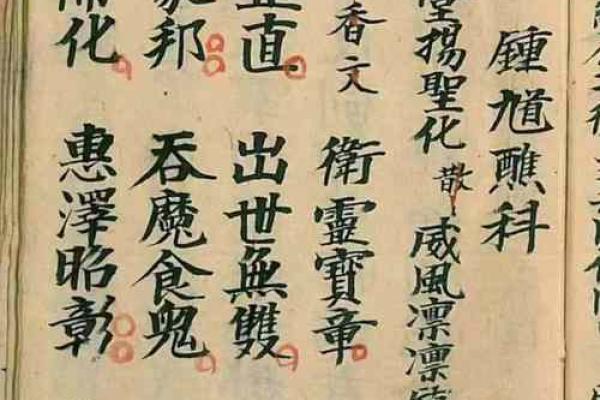 鍾馗醮科
堂揚聖化 散 威風凛凛
香文 衛靈寶章
正直 出世無雙
邦 吞魔食鬼
化 惠澤昭彰